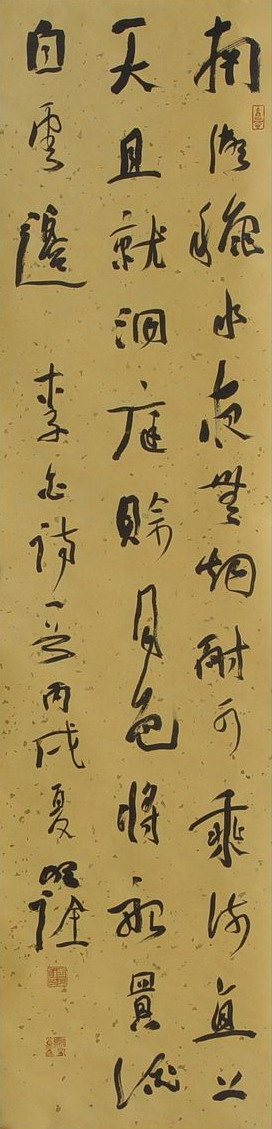 南湖穐水夜無烟耐可乘流直上
天且就洞庭賒月色將船買酒
白雲邊 李白詩一首丙戌夏明詮